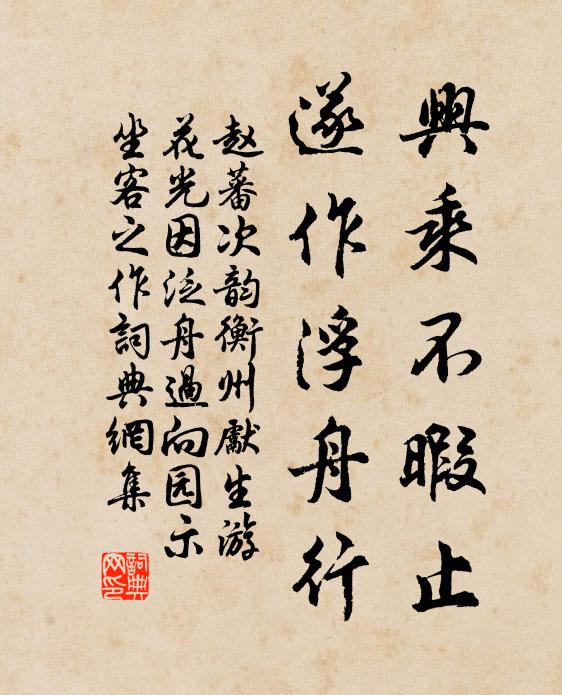 興乘不暇止
遂作浮舟行
赵蕃次韵衡州獻生游
花光因泛舟過向园示
坐客之作詞典網集
詞典网印